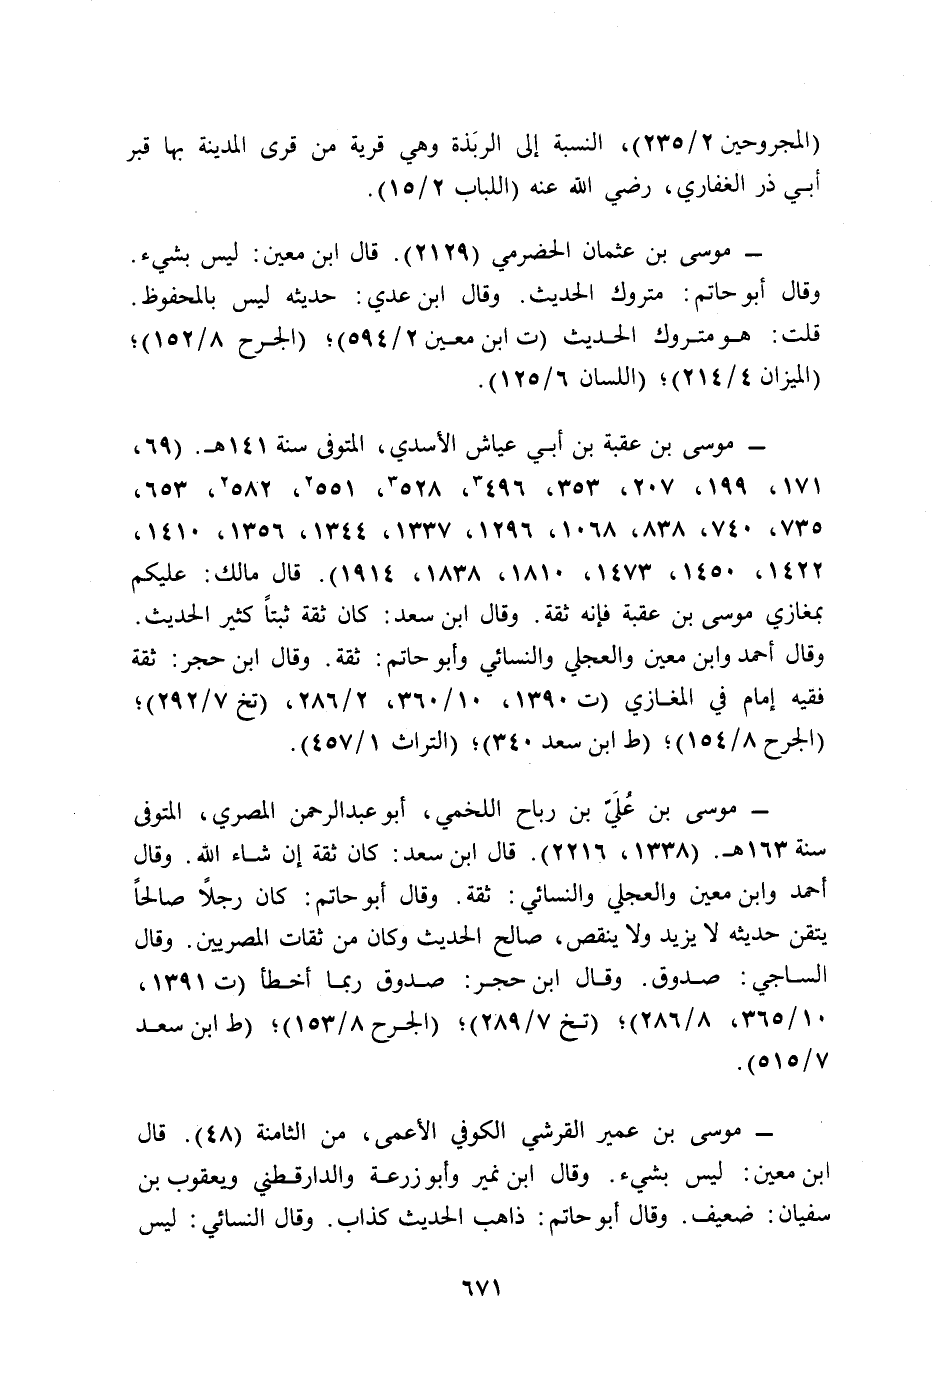 (المجروحين ٢/٢٣٥)، النسبة إلى الربَذة وهي قرية من قرى المدينة بها قبر
أبي ذر الغفاري، رضي الله عنه (اللباب ٢/١٥).
— موسى بن عثمان الحضرمي (٢١٢٩). قال ابن معين: ليس بشيء.
وقال أبو حاتم: متروك الحديث. وقال ابن عدي: حديثه ليس بالمحفوظ.
قلت: هو متروك الحديث (ت ابن معين ٢/٥٩٤)؛ (الجرح ٨/١٥٢)؛
(الميزان ٤/٢١٤)؛ (اللسان ٦/١٢٥).
— موسى بن عقبة بن أبي عياش الأسدي، المتوفى سنة ١٤١هـ. (٦٩،
١٧١، ١٩٩، ٢٠٧، ٣٥٣، ٤٩٦³، ٥٢٨³، ٥٥١²، ٥٨٢²، ٦٥٣،
٧٣٥، ٧٤٠، ٨٣٨، ١٠٦٨، ١٢٩٦، ١٣٣٧، ١٣٤٤، ١٣٥٦، ١٤١٠،
١٤٢٢، ١٤٥٠، ١٤٧٣، ١٨١٠، ١٨٣٨، ١٩١٤). قال مالك: عليكم
بمغازي موسى بن عقبة فإنه ثقة. وقال ابن سعد: كان ثقة ثبتاً كثير الحديث.
وقال أحمد وابن معين والعجلي والنسائي وأبو حاتم: ثقة. وقال ابن حجر: ثقة
فقيه إمام في المغازي (ت ١٣٩٠، ١٠/٣٦٠، ٢/٢٨٦، (تخ ٧/٢٩٢)؛
(الجرح ٨/١٥٤)؛ (ط ابن سعد ٣٤٠)؛ (التراث ١/٤٥٧).
— موسى بن عُلَيّ بن رباح اللخمي، أبو عبدالرحمن المصري، المتوفى
سنة ١٦٣هـ. (١٣٣٨، ٢٢١٦). قال ابن سعد: كان ثقة إن شاء الله. وقال
أحمد وابن معين والعجلي والنسائي: ثقة. وقال أبو حاتم: كان رجلاً صالحاً
يتقن حديثه لا يزيد ولا ينقص، صالح الحديث وكان من ثقات المصريين. وقال
الساجي: صدوق. وقال ابن حجر: صدوق ربما أخطأ (ت ١٣٩١،
١٠/٣٦٥، ٨/٢٨٦)؛ (تخ ٧/٢٨٩)؛ (الجرح ٨/١٥٣)؛ (ط ابن سعد
٧/٥١٥).
— موسى بن عمير القرشي الكوفي الأعمى، من الثامنة (٤٨). قال
ابن معين: ليس بشيء. وقال ابن نمير وأبو زرعة والدارقطني ويعقوب بن
سفيان: ضعيف. وقال أبو حاتم: ذاهب الحديث كذاب. وقال النسائي: ليس
٦٧١